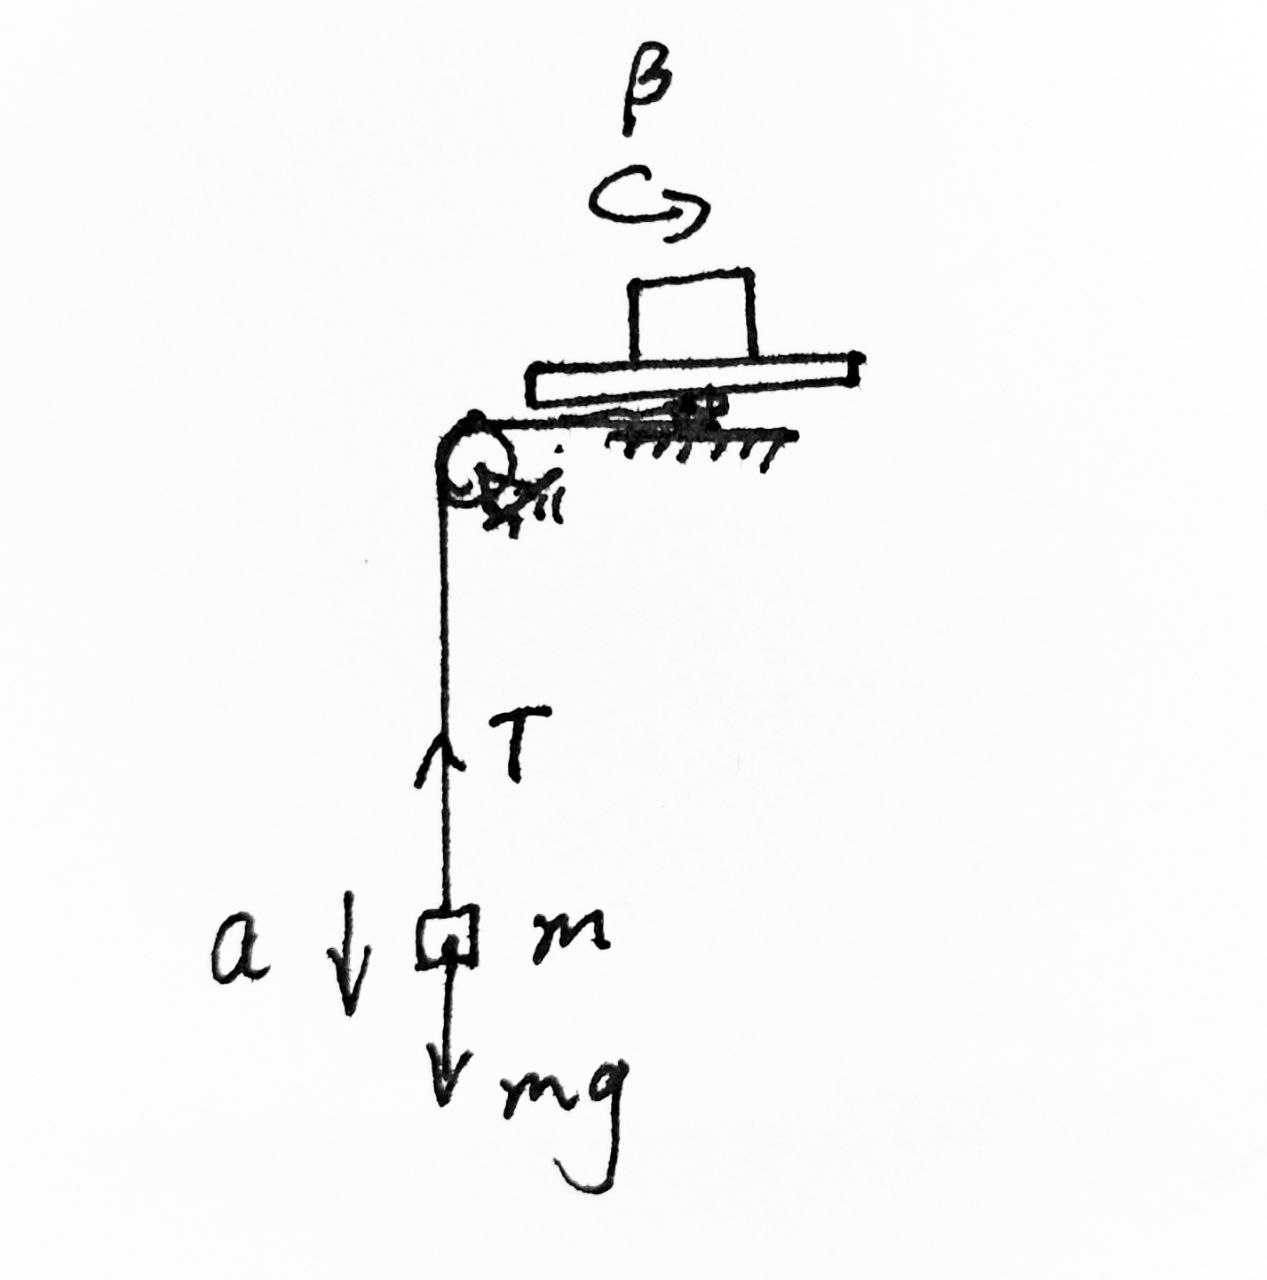 β
T
a
m
mg